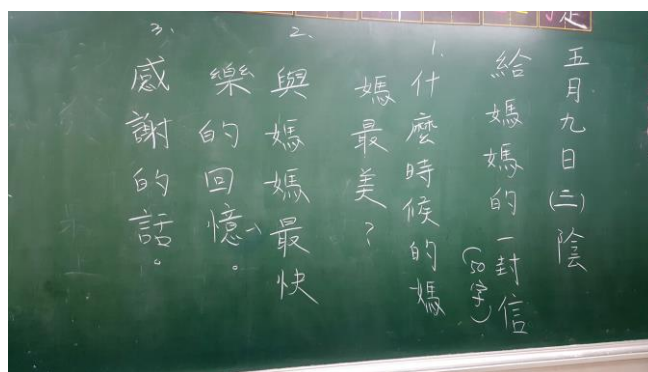 五月九日(三)陰
給媽媽的一封信
(50字)
1.什麼時候的媽
媽最美?
2.與媽媽最快
樂的回憶。
3.感謝的話。